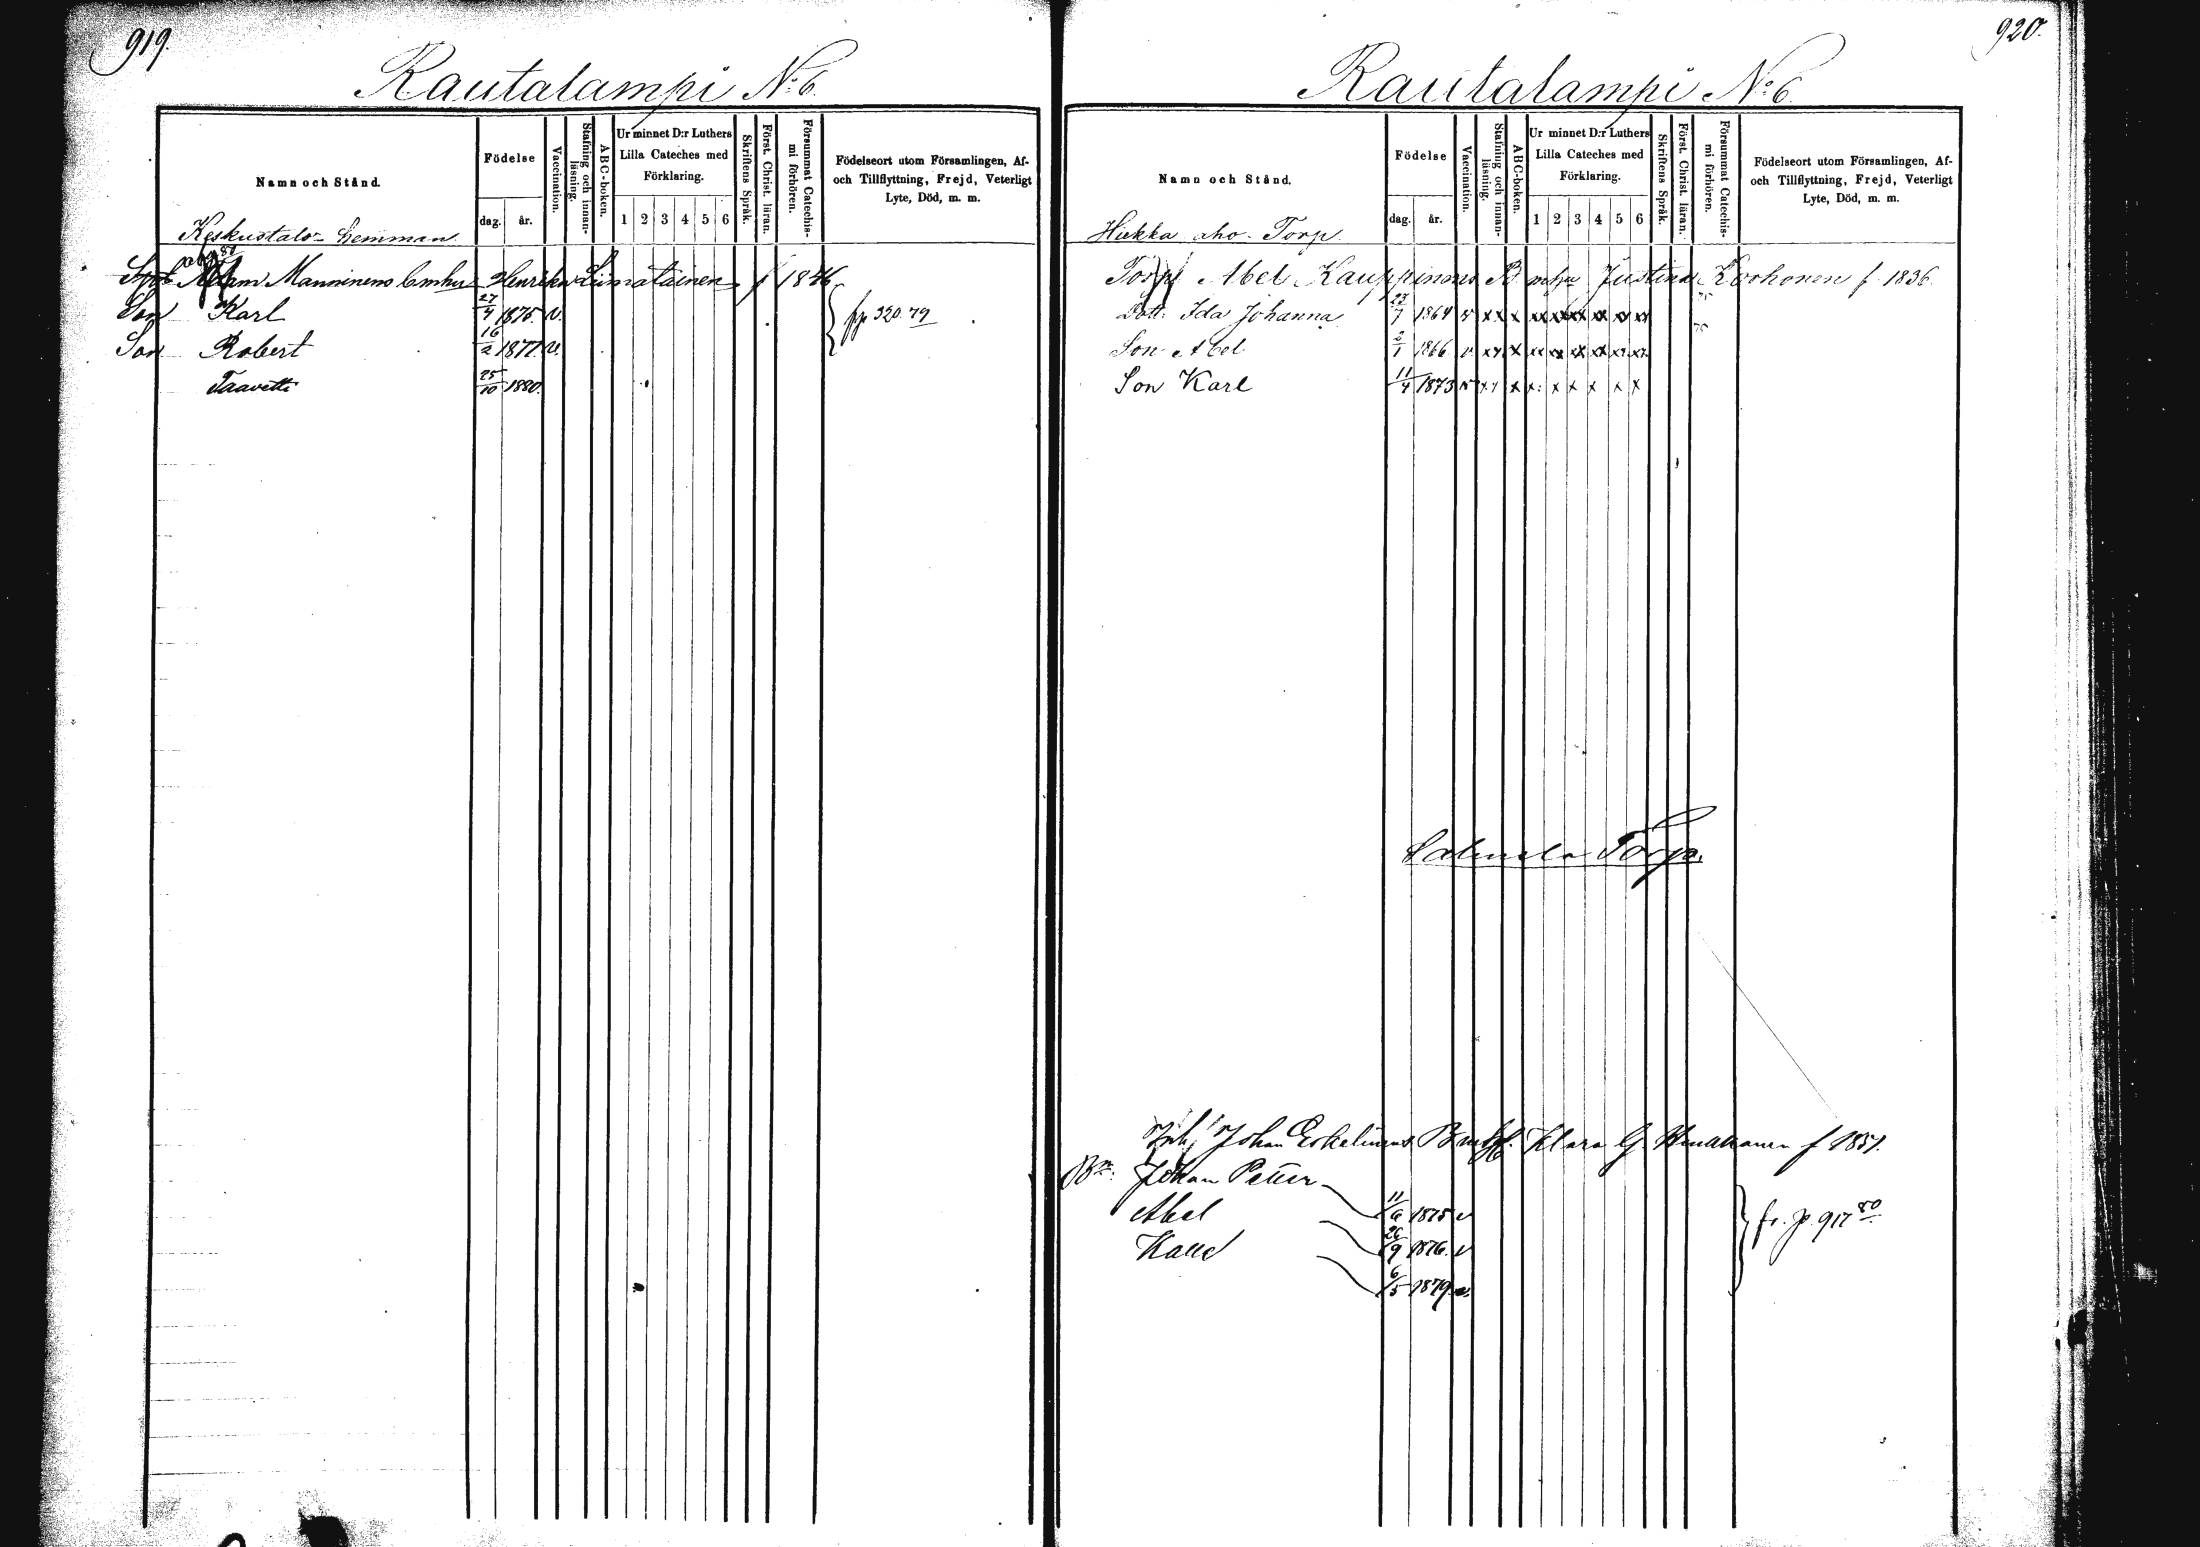 919.
Rautalampi No 6.
Namn och Stånd.
Födelse
dag.
år.
Vaccination.
Stafning och innan-
läsning.
ABC-boken.
Ur minnet D:r Luthers
Lilla Cateches med
Förklaring.
1 2 3 4 5 6
Skriftens Språk.
Först. Christ. läran.
Försummat Catechis-
mi förhören.
Födelseort utom Församlingen, Af-
och Tillflyttning, Frejd, Veterligt
Lyte, Död, m. m.
Keskustalo hemman
Manninens Henrika Liimatainen f 1846
Son Karl 27/4 1875. v.
fr p 320.79
Son Robert 16/2 1877. v.
Taavetti 25/10 1880.
920.
Rautalampi No 6.
Namn och Stånd.
Födelse
dag.
år.
Vaccination.
Stafning och innan-
läsning.
ABC-boken.
Ur minnet D:r Luthers
Lilla Cateches med
Förklaring.
1 2 3 4 5 6
Skriftens Språk.
Först. Christ. läran.
Försummat Catechis-
mi förhören.
Födelseort utom Församlingen, Af-
och Tillflyttning, Frejd, Veterligt
Lyte, Död, m. m.
Hukka aho Torp.
Torp Abel Kauppinens B mhu Justina Korhonen f 1836.
Dott. Ida Johanna 7 1864 v xx x xx xx xx xx xx xx
Son Abel 2/1 1866 v xx x xx xx xx xx xx xx
Son Karl 11/4 1873 v xx x x x x x x x
Torp.
Johan Eskelinens Klara G. f 1851.
Bn: Johan Petter
Abel 11/6 1875 v
fr. p. 917 80
Kalle 26/9 1876. v
6/5 1879. v.